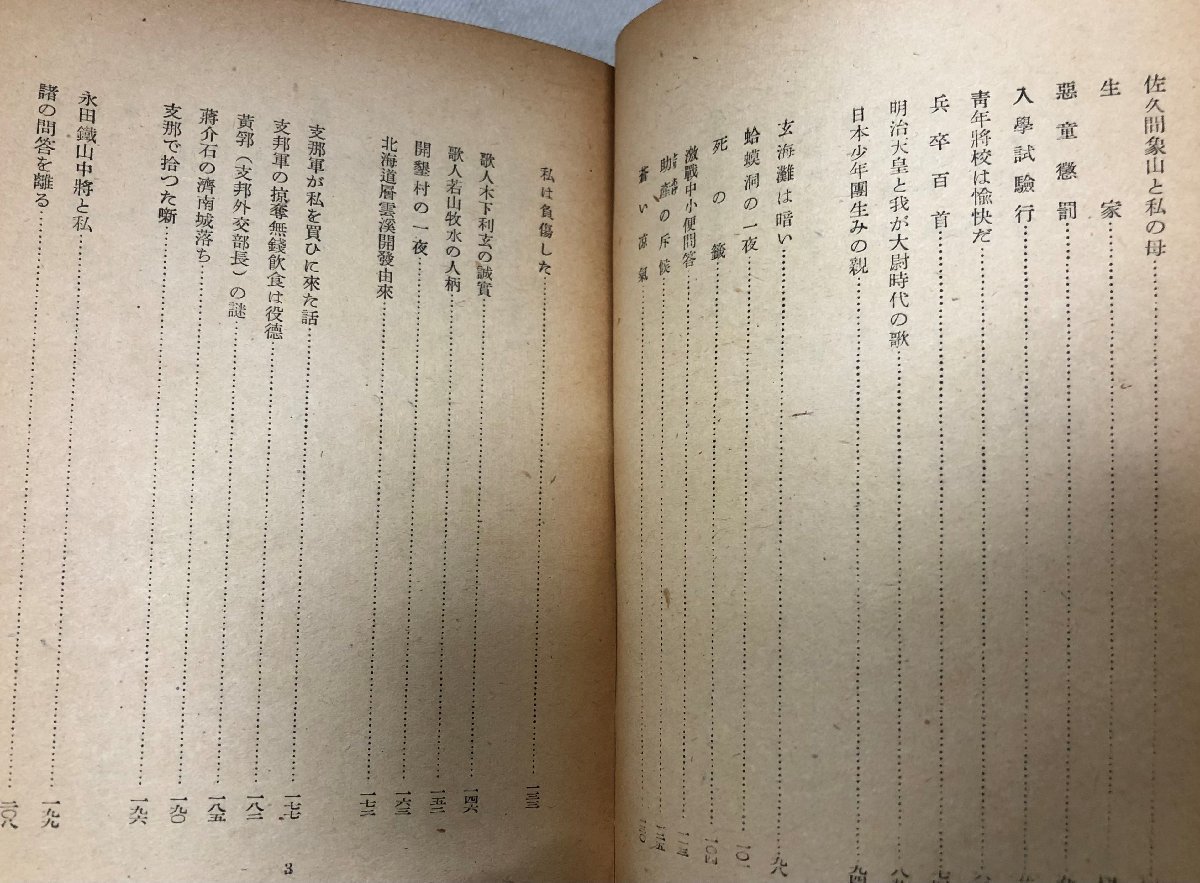 佐久間象山と私の母
生家
惡童懲罰
入學試驗行
靑年將校は愉快だ
兵卒百首
明治天皇と我が大尉時代の歌
日本少年團生みの親……九四
玄海灘は暗い……九八
蛤蟆洞の一夜……一〇一
死の籤……一〇四
激戰中小便問答……一一五
助產の斥候
蒼い凉氣
私は負傷した
歌人木下利玄の誠實……一四六
歌人若山牧水の人柄……一五二
開墾村の一夜……一六三
北海道層雲溪開發由來……一七三
支那軍が私を買ひに來た話……一七七
支邦軍の掠奪無錢飮食は役德……一八二
黃郛（支邦外交部長）の謎……一八五
蔣介石の濟南城落ち……一九〇
支那で拾つた噺……一九六
永田鐵山中將と私……一九九
諸の問答を離る……二〇八
3